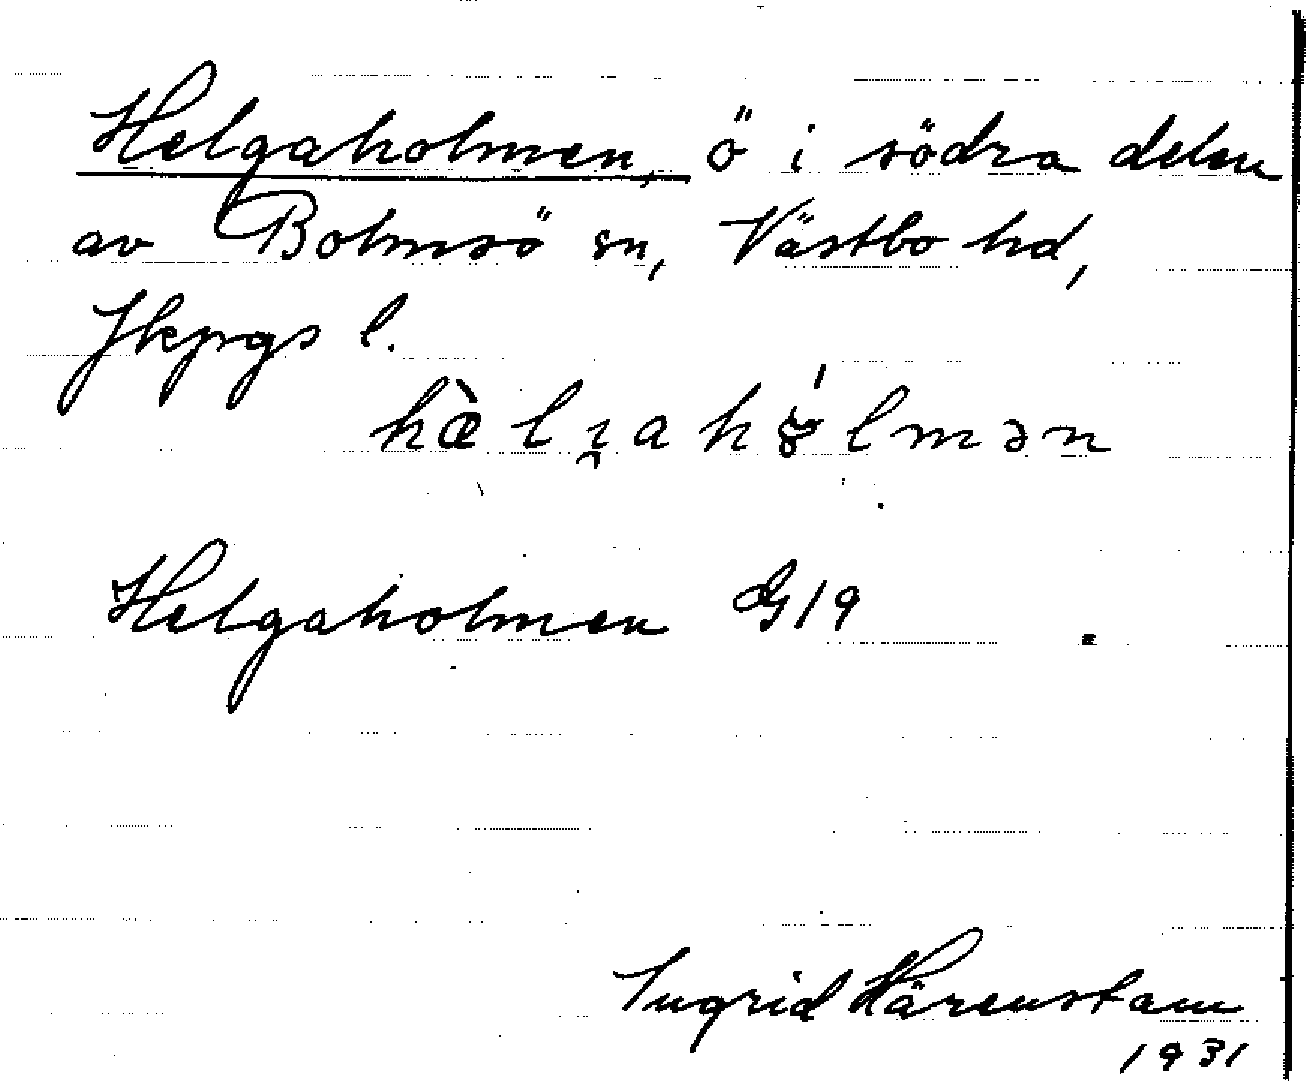 Helgaholmen, ö i södra delen
av Bolmsö sn, Västbo hd,
Jkpgs l.
Helgaholmen G19
Ingrid Härenstam
1931